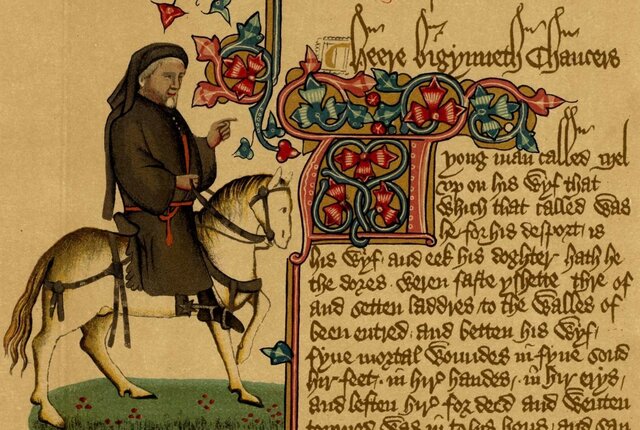 Heere bigynneth Chaucers
A yong man called Mel
vp on his wyf that
which that called was
he for his desport is
his wyf and eek his doghter hath he
the dores weren faste yshette thre of
and setten laddres to the walles of
been entred and betten his wyf
fyue mortal woundes in fyue sond
hir feet in hir handes in hir erys
and leften hir for deed and wenten
torned was in to his hous and sau